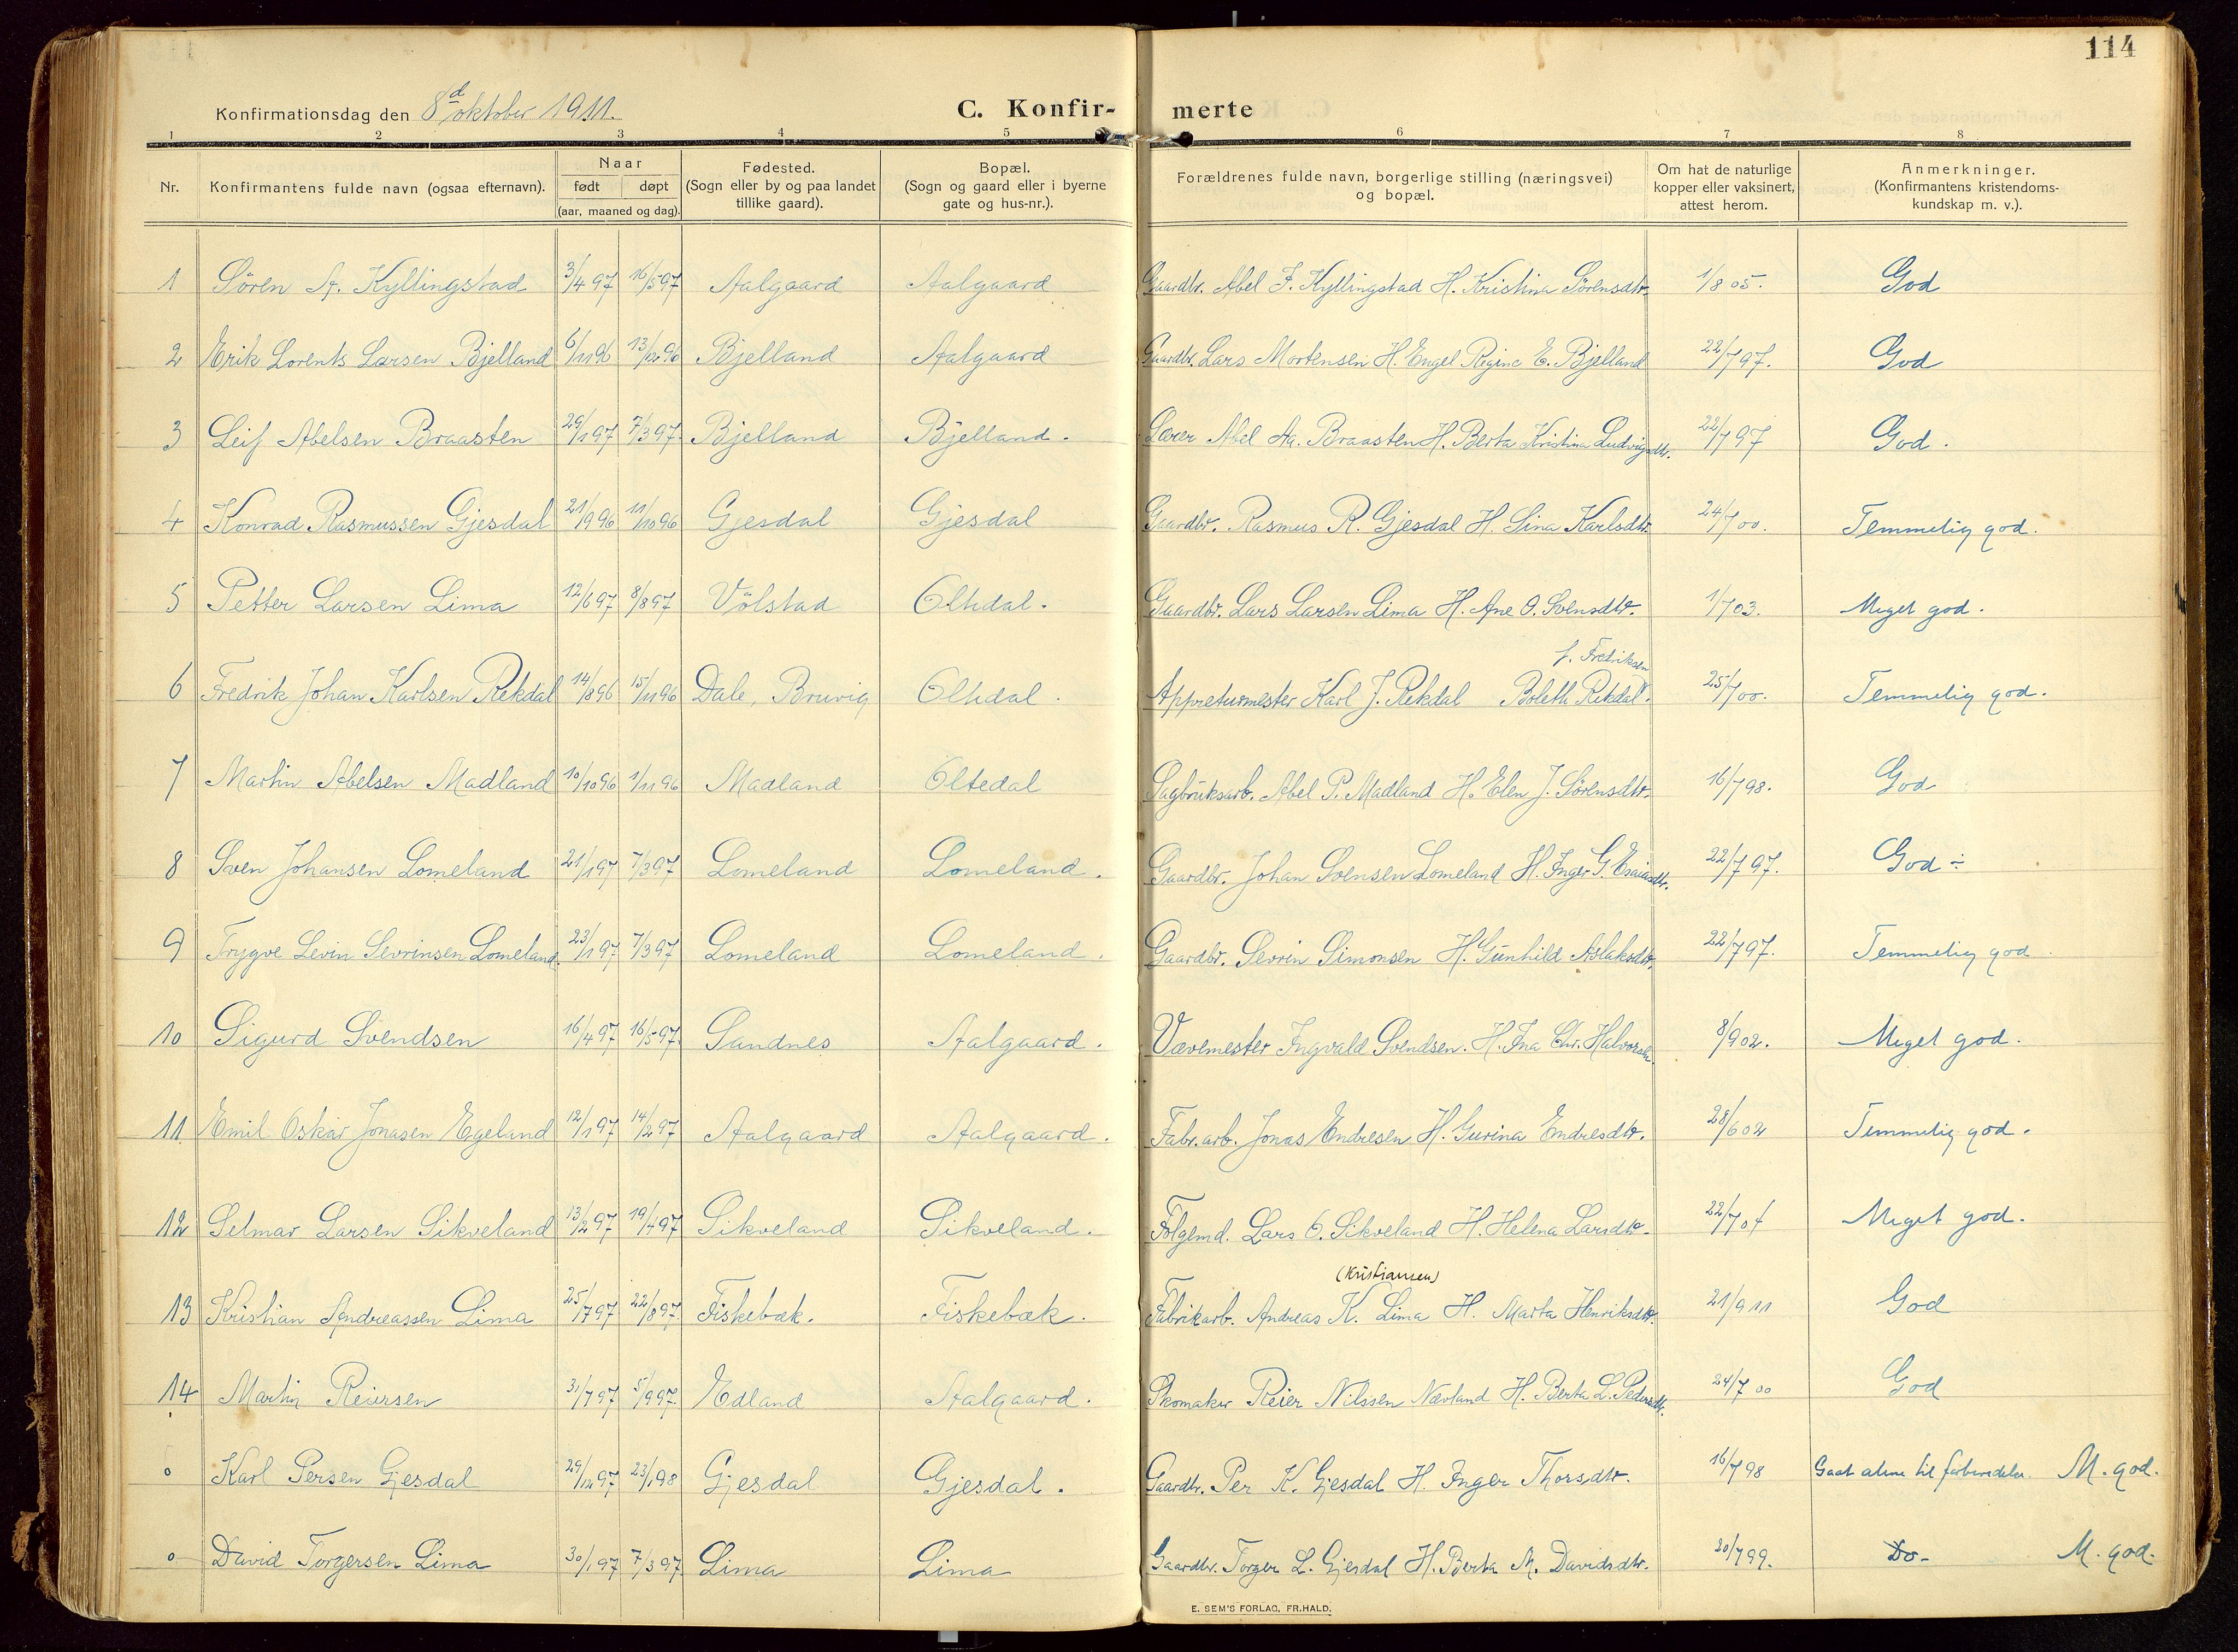 114
Konfirmationsdag den 8d oktober 1911. C. Konfir- merte
1 2 3 4 5 6 7 8
Nr. Konfirmantens fulde navn (ogsaa efternavn). Naar født døpt (aar, maaned og dag). Fødested. (Sogn eller by og paa landet tillike gaard). Bopæl. (Sogn og gaard eller i byerne gate og hus-nr.). Forældrenes fulde navn, borgerlige stilling (næringsvei) og bopæl. Om hat de naturlige kopper eller vaksinert, attest herom. Anmerkninger. (Konfirmantens kristendoms- kundskap m. v.).
1 Sören A. Kyllingstad 3/4 97 16/5 97 Aalgaard Aalgaard Gaardbr. Abel F. Kyllingstad H. Kristina Sörensdtr. 1/8 05. God
2 Erik Lorents Larsen Bjelland 6/11 96 13/12 96 Bjelland Aalgaard Gaardbr. Lars Mortensen H. Engel Regine E. Bjelland 22/7 97. God
3 Leif Abelsen Braasten 29/1 97 7/3 97. Bjelland Bjelland. Lærer Abel Aa. Braasten H. Berta Kristina Ludvigsdtr. 22/7 97 God.
4 Konrad Rasmussen Gjesdal 21/9 96 11/10 96 Gjesdal Gjesdal Gaardbr. Rasmus R. Gjesdal H. Sina Karlsdtr. 24/7 00. Temmelig god.
5 Petter Larsen Lima 12/6 97 8/8 97 Völstad Oltedal. Gaardbr. Lars Larsen Lima H. Ane O. Svensdtr. 1/7 03. Meget god.
f. Fredriksen
6 Fredrik Johan Karlsen Rekdal 14/8 96 15/11 96 Dale, Bruvig Oltedal. Appreturmester Karl J. Rekdal Boleth Rekdal. 25/7 00. Temmelig god.
7 Martin Abelsen Madland 10/10 96 1/11 96 Madland Oltedal Sagbruksarb. Abel P. Madland H. Elen J. Sörensdtr. 16/7 98. God
8 Sven Johansen Lomeland 21/1 97 7/3 97 Lomeland Lomeland. Gaardbr. Johan Svensen Lomeland H. Inger G. Esaiasdtr. 22/7 97. God ÷
9 Trygve Levin Sevrinsen Lomeland. 23/1 97 7/3 97 Lomeland Lomeland. Gaardbr. Sevrin Simonsen H. Gunhild Aslaksdtr. 22/7 97. Temmelig god
10 Sigurd Svendsen 16/4 97 16/5 97. Sandnes Aalgaard. Vævemester Ingvald Svendsen. H. Ina Chr. Halvorsdtr. 8/9 02. Meget god.
11 Emil Oskar Jonasen Egeland 12/1 97 14/2 97 Aalgaard Aalgaard. Fabr. arb. Jonas Endresen H. Gurina Endresdtr. 28/6 02 Temmelig god.
12 Selmar Larsen Sikveland 13/2 97 19/4 97 Sikveland Sikveland. Folgemd. Lars O. Sikveland H. Helena Larsdtr. 22/7 Meget god.
(Kristiansen)
13 Kristian Andreassen Lima 25/7 97 22/8 97. Fiskebæk. Fiskebæk. Fabrikarb. Andreas K. Lima H. Marta Henriksdtr. 21/9 11 God
14 Martin Reiersen 31/7 97 5/9 97. Edland Aalgaard. Skomaker Reier Nilssen Nævland H. Berta L. Pedersdtr. 24/7 00 God
o Karl Persen Gjesdal 29/12 97 23/1 98 Gjesdal Gjesdal. Gaardbr. Per K. Gjesdal H. Inger Thorsdtr. 16/7 98 Gaat alene til forberedelse. M. god.
o David Torgersen Lima 30/1 97 7/3 97 Lima Lima Gaardbr. Torger L. Gjesdal H. Berta M. Davidsdtr. 20/7 99. Do- M. god.
E. SEM'S FORLAG, FR.HALD.